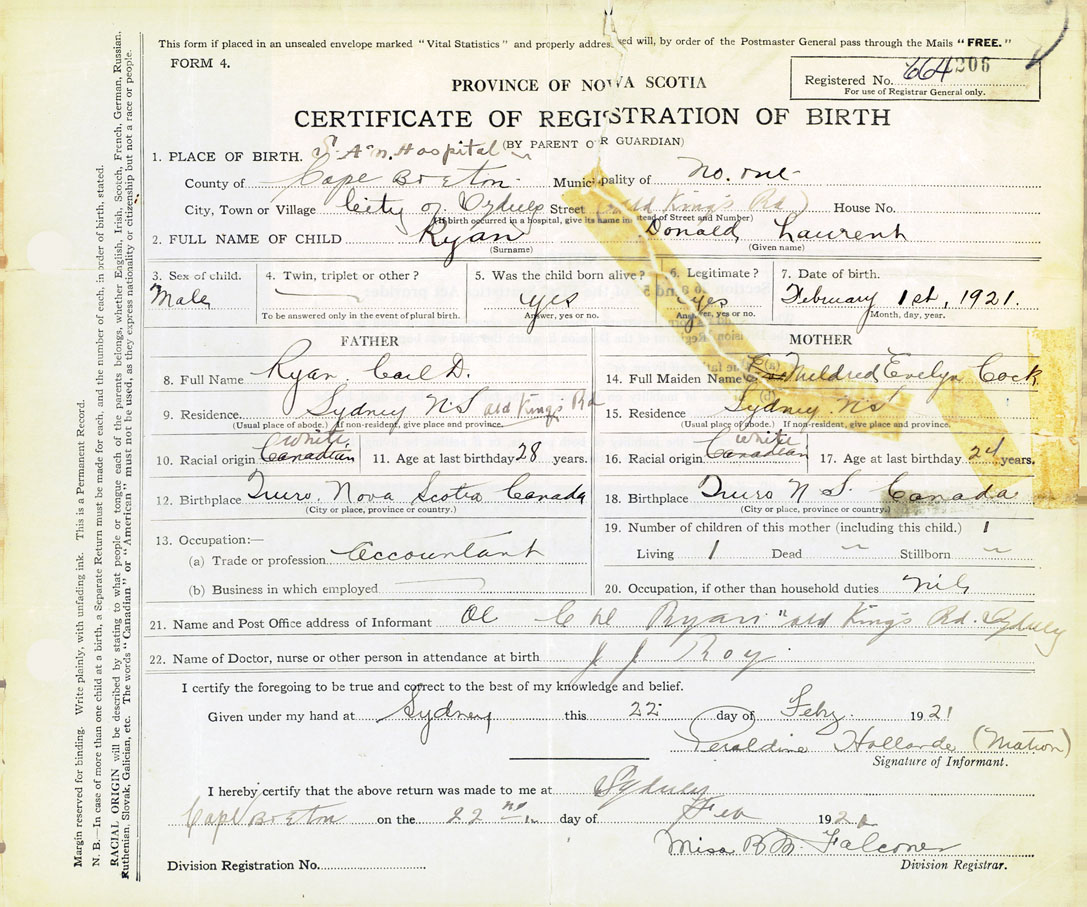 This form if placed in an unsealed envelope marked "Vital Statistics" and properly addressed will, by order of the Postmaster General pass through the Mails "FREE."
FORM 4.
Registered No. 664 206
For use of Registrar General only.
PROVINCE OF NOVA SCOTIA
CERTIFICATE OF REGISTRATION OF BIRTH
(BY PARENT OR GUARDIAN)
1. PLACE OF BIRTH. Hospital
County of Cape Breton Municipality of No. one
City, Town or Village City of Sydney Street (old King's Rd) House No.
(If birth occurred in a hospital, give its name instead of Street and Number)
2. FULL NAME OF CHILD Ryan Donald Laurent
(Surname) (Given name)
3. Sex of child. 4. Twin, triplet or other? 5. Was the child born alive? 6. Legitimate? 7. Date of birth.
Male yes yes February 1st, 1921.
To be answered only in the event of plural birth. Answer, yes or no. Answer, yes or no. Month, day, year.
FATHER
8. Full Name Ryan. Carl D.
9. Residence Sydney N.S old King's Rd
(Usual place of abode.) If non-resident, give place and province.
white
10. Racial origin Canadian 11. Age at last birthday 28 years.
12. Birthplace Truro. Nova Scotia Canada
(City or place, province or country.)
13. Occupation:—
(a) Trade or profession Accountant
(b) Business in which employed
MOTHER
14. Full Maiden Name Mildred Evelyn Cock
15. Residence Sydney. N.S
(Usual place of abode.) If non-resident, give place and province.
white
16. Racial origin Canadian 17. Age at last birthday 24 years.
18. Birthplace Truro N S. Canada
(City or place, province or country.)
19. Number of children of this mother (including this child.) 1
Living 1 Dead Stillborn
20. Occupation, if other than household duties Nil
21. Name and Post Office address of Informant Ryan "old King's Rd. Sydney
22. Name of Doctor, nurse or other person in attendance at birth J J Roy.
I certify the foregoing to be true and correct to the best of my knowledge and belief.
Given under my hand at Sydney this 22 day of Feby. 1921
Geraldine Hollande (Matron)
Signature of Informant.
I hereby certify that the above return was made to me at Sydney
Cape Breton on the 22 day of Feb 192
Miss B M. Falconer
Division Registration No. Division Registrar.
Margin reserved for binding. Write plainly, with unfading ink. This is a Permanent Record.
N. B.—In case of more than one child at a birth, a Separate Return must be made for each, and the number of each, in order of birth, stated.
RACIAL ORIGIN will be described by stating to what people or tongue each of the parents belongs, whether English, Irish, Scotch, French, German, Russian,
Ruthenian, Slovak, Galician, etc. The words "Canadian" or "American" must not be used, as they express nationality or citizenship but not a race or people.